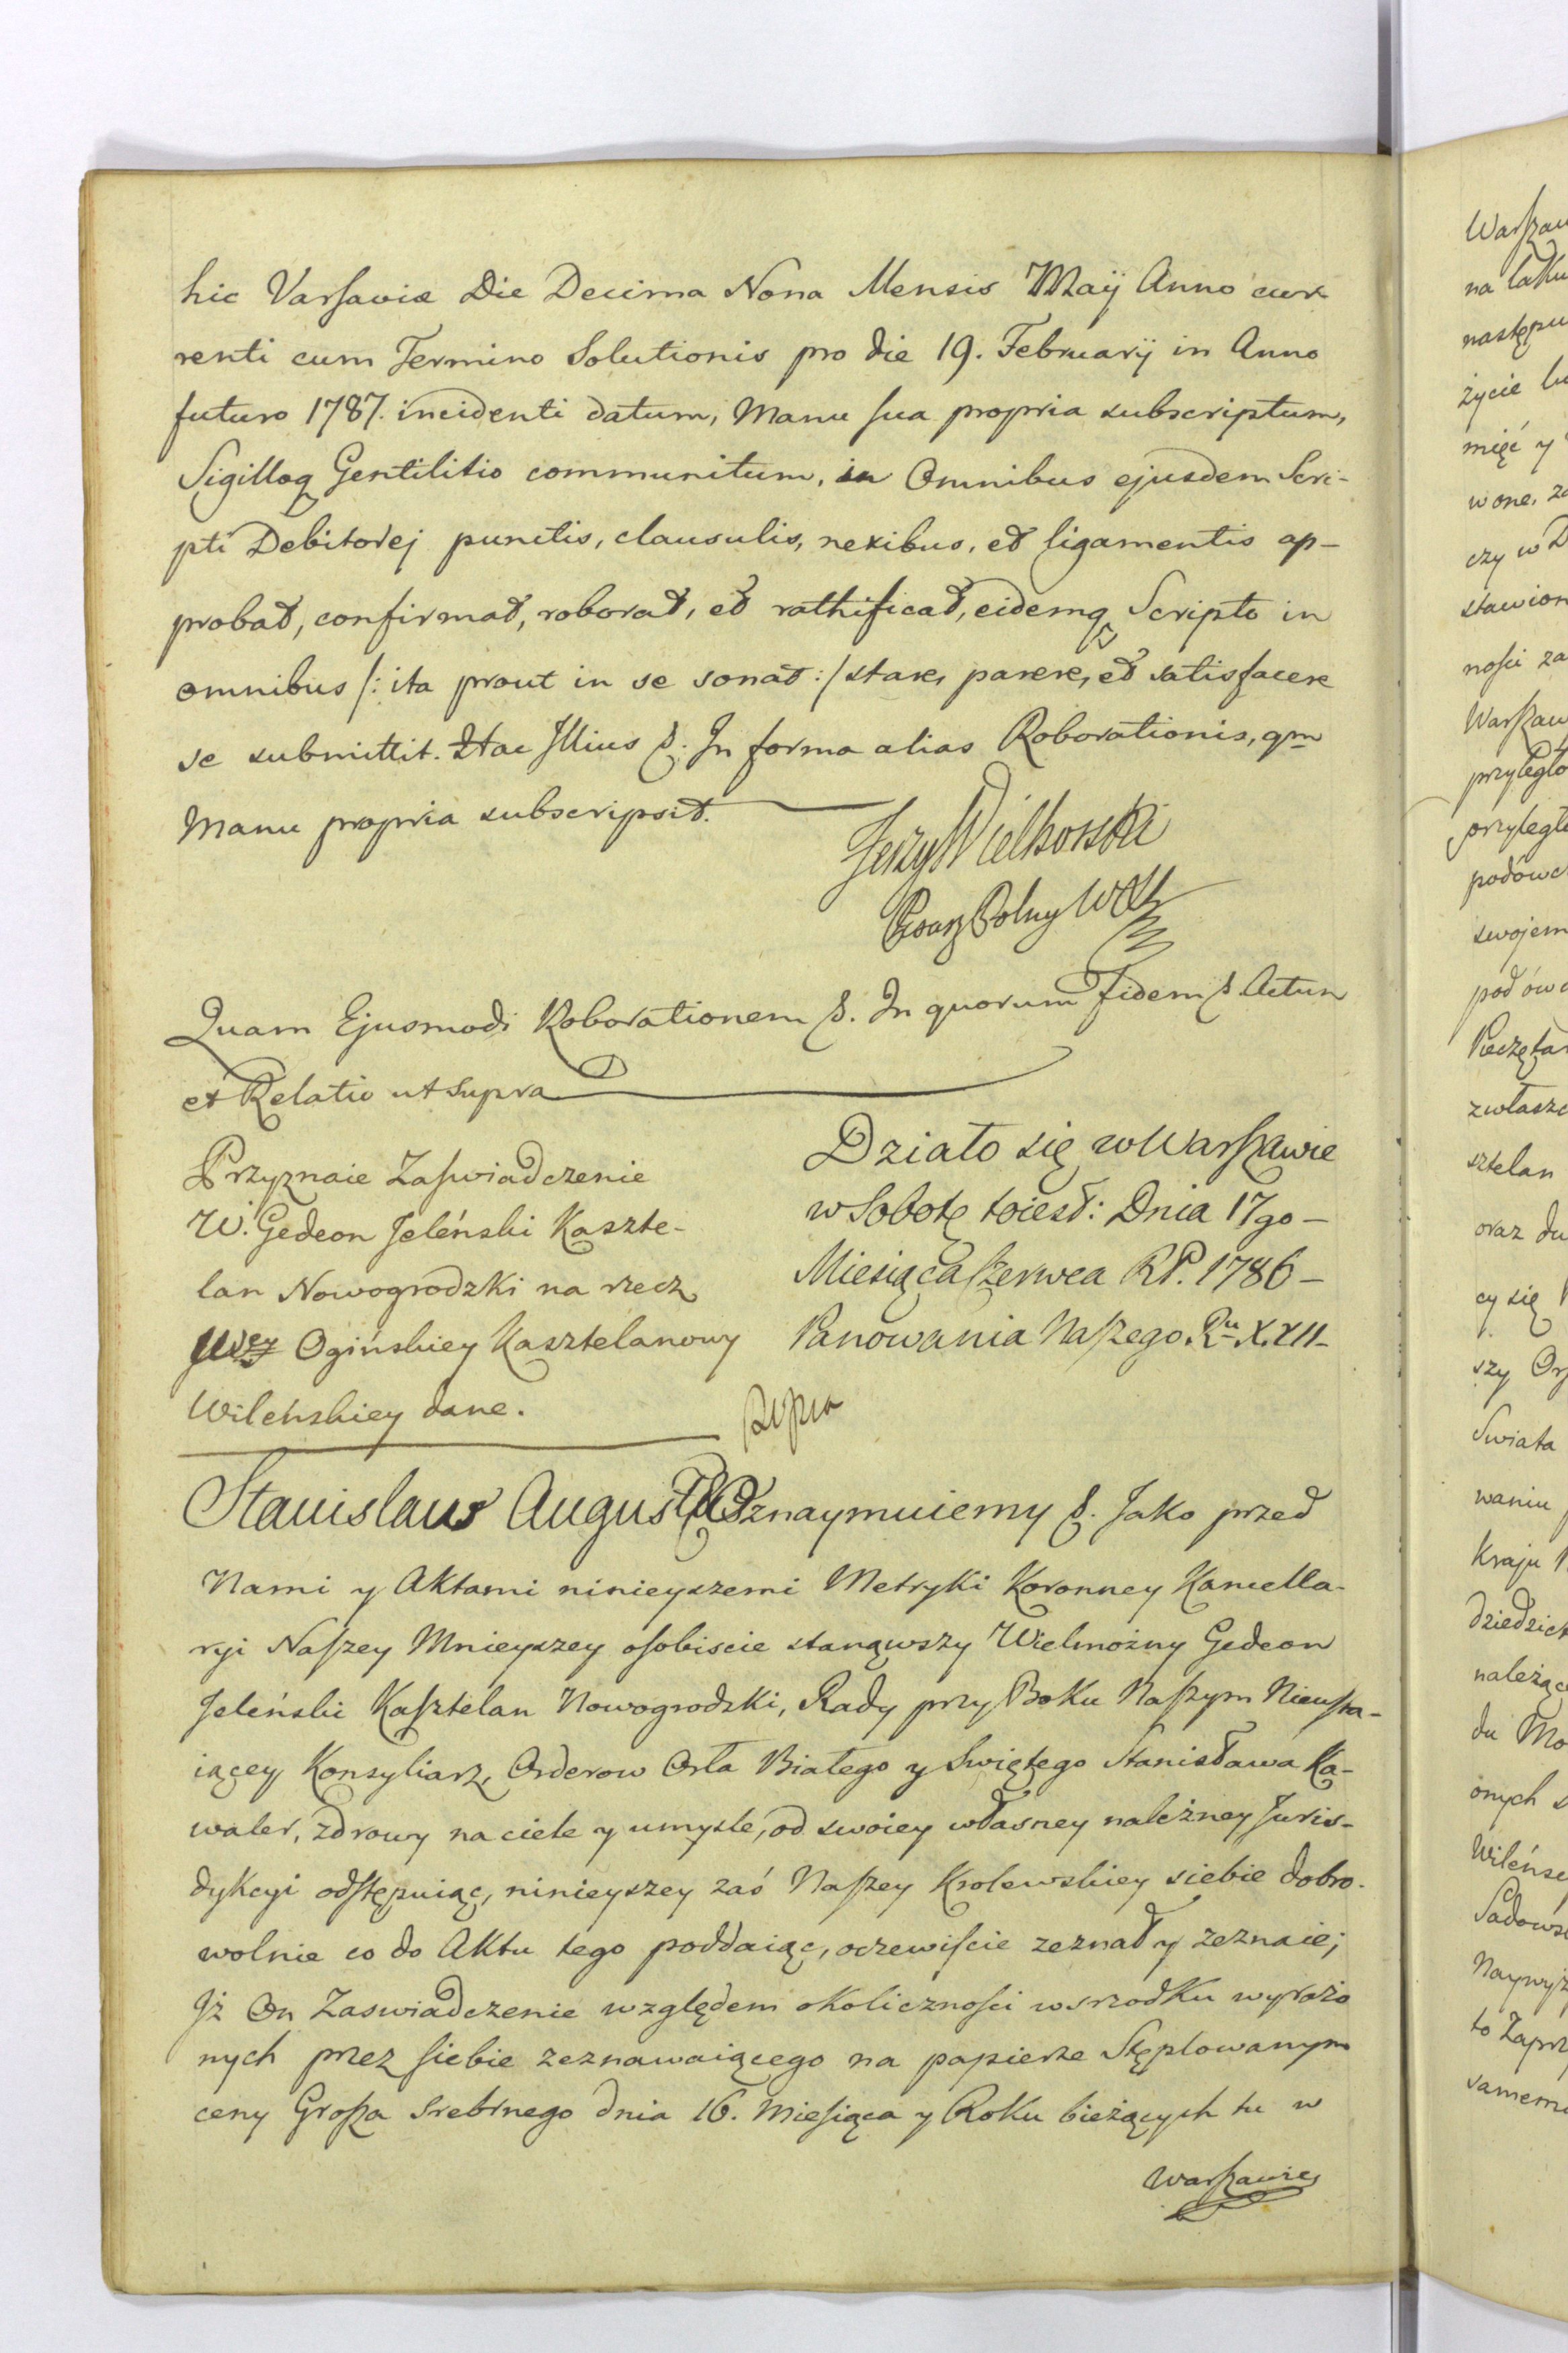 hic Varsaviæ Die Decima Nona Mensis Maÿ Anno cur-
renti cum Termino Solutionis pro die 19. Februarÿ in Anno
futuro 1787. incidenti datum, Manu sua propria subscriptum,
Sigilloq Gentilitio communitum, in Omnibus ejusdem Scri-
pti Debitorej punctis, clausulis, nexibus, et ligamentis ap-
probat, confirmat, roborat, et rathificat, eidemq Scripto in
omnibus /: ita prout in se sonat :/ stare, parere, et satisfacere
se submittit. Hac Illius &. In forma alias Roborationis, qm
Manu propria subscripsit.
Jerzy Wielhorski
Pisarz Polny WXL
Quam Ejusmodi Roborationem &. In quorum Fidem & Actum
et Relatio ut supra
Przyznaie Zaswiadczenie
W. Gedeon Jeleński Kaszte-
lan Nowogrodzki na rzecz
JWey Ogińskiey Kasztelanowy
Wileńskiey dane.
Działo się w Warszawie
w Sobotę toiest: Dnia 17go –
Miesiąca Czerwca RP. 1786 –
Panowania Naszego Ru XXII –
Stanislaus Augustus Oznaymuiemy &. Jako przed
Nami y Aktami ninieyszemi Metryki Koronney Kancella-
ryi Naszey Mnieyszey osobiscie stanąwszy Wielmożny Gedeon
Jeleński Kasztelan Nowogrodzki, Rady przy Boku Naszym Nieusta-
iącey Konsyliarz, Orderow Orła Białego y Swiętego Stanisława Ka-
waler, zdrowy na ciele y umysle, od swoiey własney należney Juris-
dykcyi odstępuiąc, ninieyszey zaś Naszey Krolewskiey siebie dobro-
wolnie co do Aktu tego poddaiąc, oczewiscie zeznał y zeznaie;
Iż On Zaswiadczenie względem okolicznosci wsrzodku wyrażo
nych przez siebie zeznawaiącego na papierze Stęplowanym
ceny Grosza srebrnego dnia 16. Miesiąca y Roku bieżących tu w
Warszawie